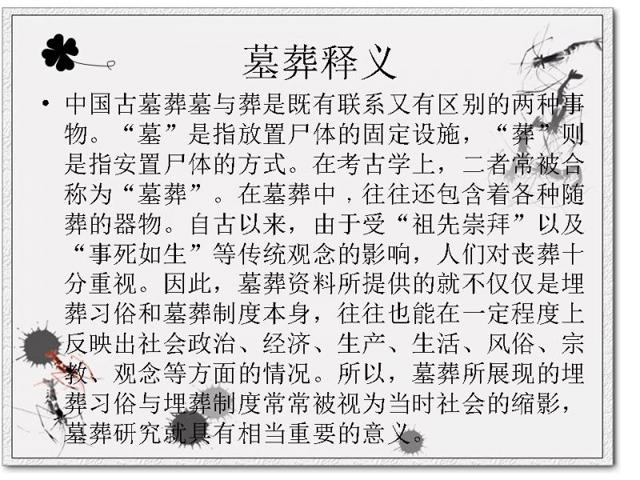 墓葬释义
• 中国古墓葬墓与葬是既有联系又有区别的两种事
物。“墓”是指放置尸体的固定设施，“葬”则
是指安置尸体的方式。在考古学上，二者常被合
称为“墓葬”。在墓葬中﹐往往还包含着各种随
葬的器物。自古以来，由于受“祖先崇拜”以及
“事死如生”等传统观念的影响，人们对丧葬十
分重视。因此，墓葬资料所提供的就不仅仅是埋
葬习俗和墓葬制度本身，往往也能在一定程度上
反映出社会政治、经济、生产、生活、风俗、宗
教、观念等方面的情况。所以，墓葬所展现的埋
葬习俗与埋葬制度常常被视为当时社会的缩影，
墓葬研究就具有相当重要的意义。